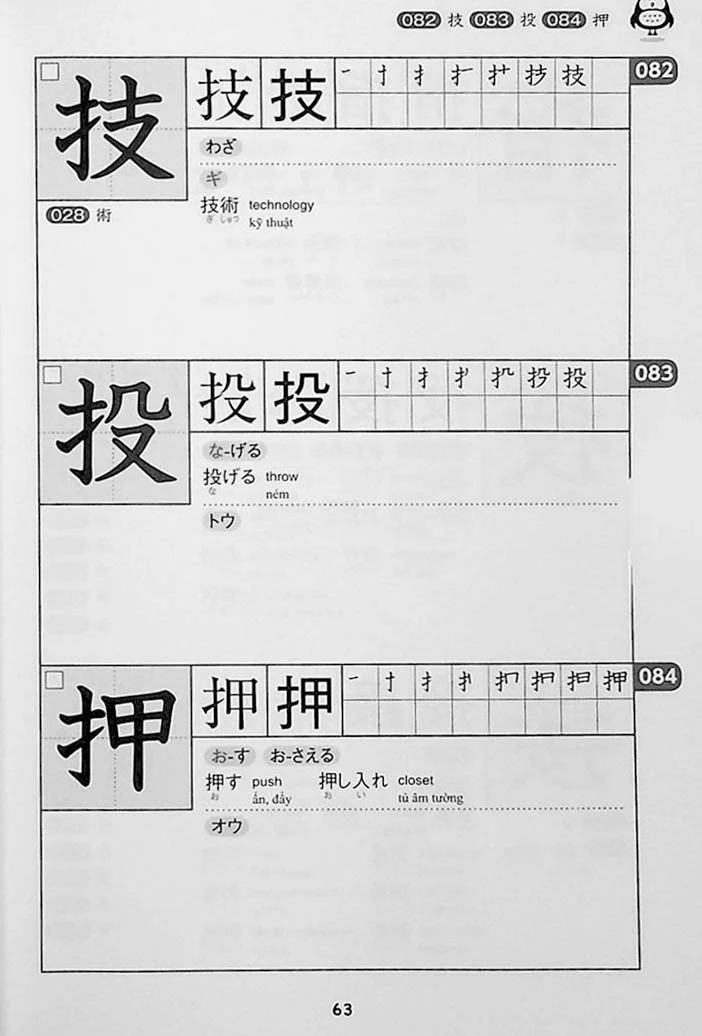 082 技 083 投 084 押
技 技 技 一 十 扌 扌 扌 抟 技 082
わざ
ギ
028 術
技術 technology
ぎ じゅつ kỹ thuật
投 投 投 083
な-げる
投げる throw
な ném
トウ
押 押 押 押 084
お-す お-さえる
押す push 押し入れ closet
お ấn, đẩy お い tủ âm tường
オウ
63